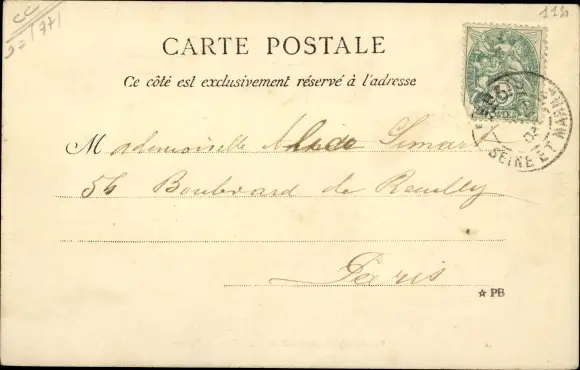 CARTE POSTALE
Ce côté est exclusivement réservé à l'adresse
Mademoiselle Simart
56 Boulevard de Reuilly
Paris
☆ PB
SEINE ET MARNE